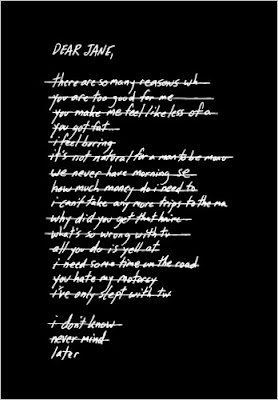 DEAR JANE,
there are so many reasons wh
you are too good for me
you make me feel like less of a
you got fat
i feel boring
it's not natural for a man to be mono
we never have morning se
how much money do i need to
i can't take any more trips to the ma
why did you get that hire
what's so wrong with tv
all you do is yell at
i need some time on the road
you hate my motorcy
i've only slept with tw
i don't know
never mind
later